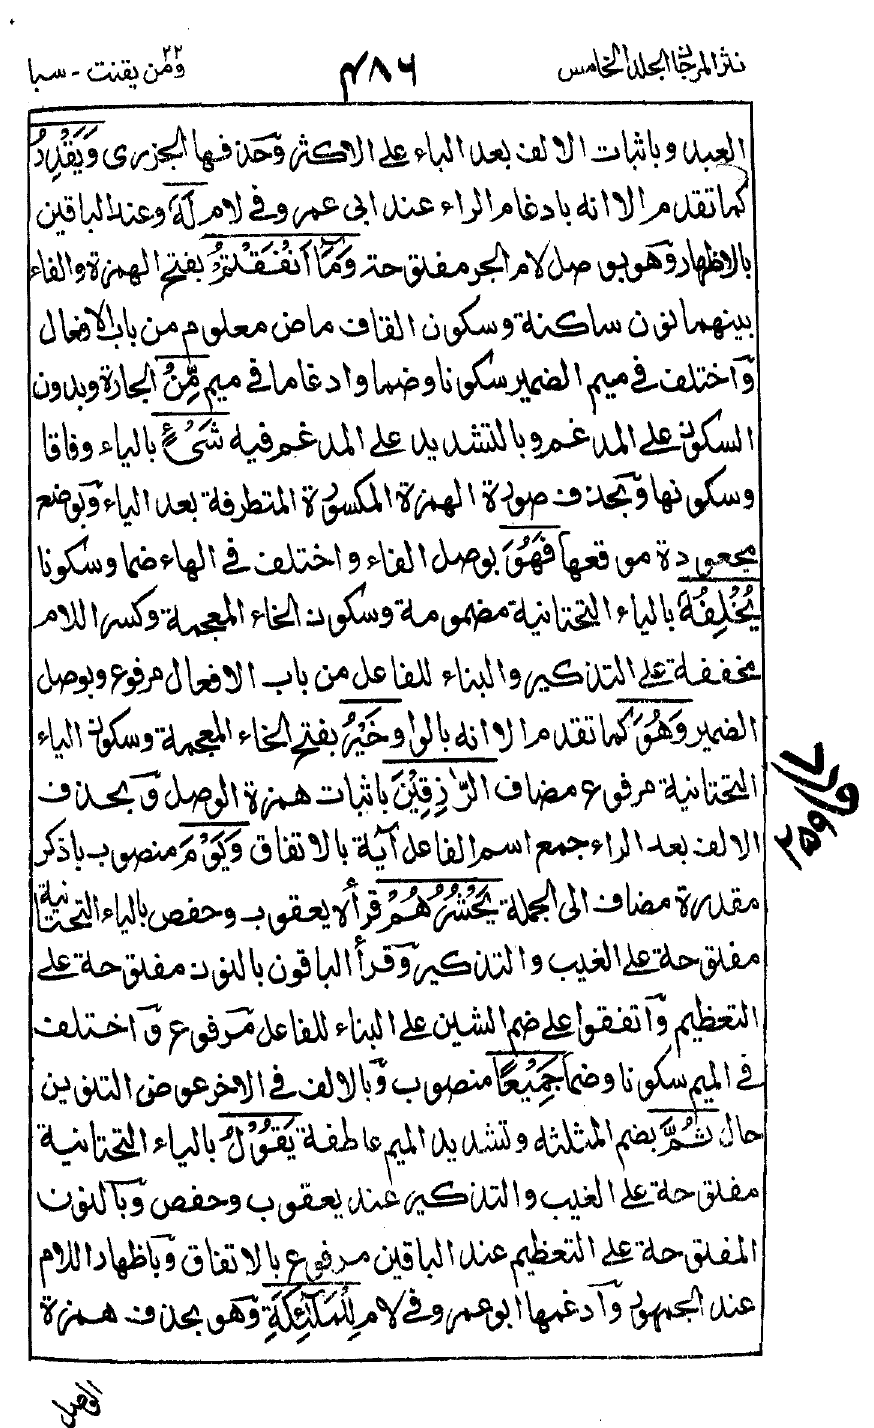 نثر المرجان الجلد الخامس
٤٨٦
ومن يقنت ٢٢ - سبا
العبد وباثبات الالف بعد الباء على الاكثر وحذفها الجزرى وَيَقْدِرُ
كما تقدم الا انه بادغام الراء عند ابى عمرو فى لام لَهُ وعند الباقين
بالاظهار وهو بوصل لام الجر مفتوحة وَمَا اَنْفَقْتُمْ بفتح الهمزة والفاء
بينهما نون ساكنة وسكون القاف ماض معلوم من باب الافعال
واختلف فى ميم الضمير سكونا وضما وادغاما فى ميم مِّنْ الجارة وبدون
السكون على المدغم وبالتشديد على المدغم فيه شَىْءٍ بالياء وفاقا
وسكونها وبحذف صورة الهمزة المكسورة المتطرفة بعد الياء وبوضع
مجعودة موقعها فَهُوَ بوصل الفاء واختلف فى الهاء ضما وسكونا
يُخْلِفُهُ بالياء التحتانية مضمومة وسكون الخاء المعجمة وكسر اللام
مخففة على التذكير والبناء للفاعل من باب الافعال مرفوع وبوصل
الضمير وَهُوَ كما تقدم الا انه بالواو خَيْرُ بفتح الخاء المعجمة وسكون الياء
التحتانية مرفوع مضاف الرّٰزِقِيْنَ باثبات همزة الوصل وبحذف
الالف بعد الراء جمع اسم الفاعل آية بالاتفاق وَيَوْمَ منصوب باذكر
مقدرة مضاف الى الجملة يَحْشُرُهُمْ قرأه يعقوب وحفص بالياء التحتانية
مفتوحة على الغيب والتذكير وقرأ الباقون بالنون مفتوحة على
التعظيم واتفقوا على ضم الشين على البناء للفاعل مرفوع واختلف
فى الميم سكونا وضما جَمِيْعًا منصوب وبالالف فى الاخر عوض التنوين
حال ثُمَّ بضم المثلثة وتشديد الميم عاطفة يَقُوْلُ بالياء التحتانية
مفتوحة على الغيب والتذكير عند يعقوب وحفص وبالنون
المفتوحة على التعظيم عند الباقين مرفوع بالاتفاق وباظهار اللام
عند الجمهور وادغمها ابو عمرو فى لام لِلْمَلٰٓئِكَةِ وهو بحذف همزة
الوصل